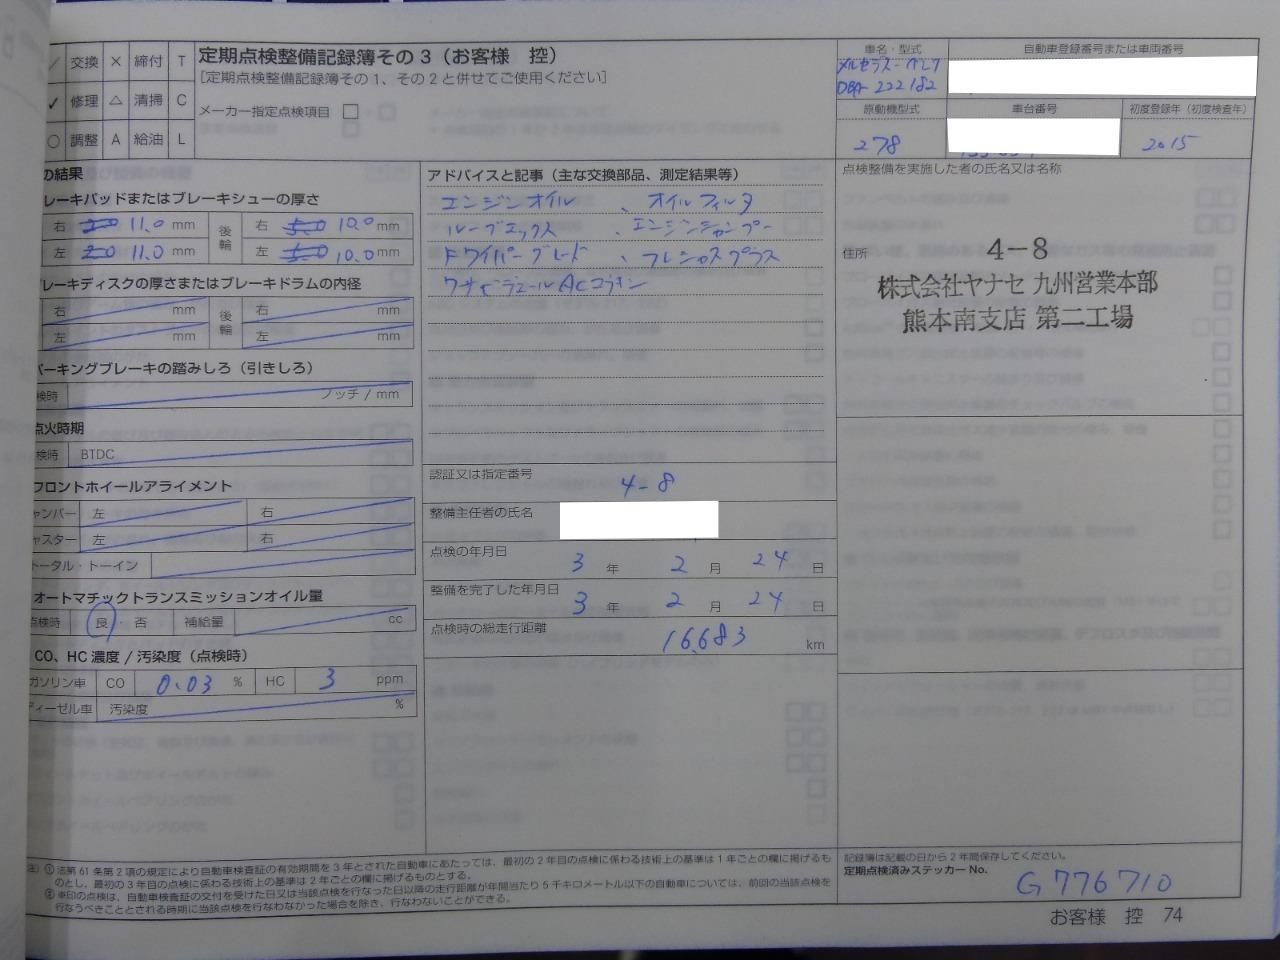 交換 × 締付 T
✓ 修理 △ 清掃 C
○ 調整 A 給油 L
定期点検整備記録簿その3（お客様 控）
［定期点検整備記録簿その1、その2と併せてご使用ください］
メーカー指定点検項目 □
車名・型式
DBA-222182
自動車登録番号または車両番号
原動機型式
278
車台番号
初度登録年（初度検査年）
2015
の結果
レーキパッドまたはブレーキシューの厚さ
右 11.0 mm 後輪 右 10.0 mm
左 11.0 mm 左 10.0 mm
レーキディスクの厚さまたはブレーキドラムの内径
右 mm 後輪 右 mm
左 mm 左 mm
パーキングブレーキの踏みしろ（引きしろ）
検時 ノッチ / mm
点火時期
検時 BTDC
フロントホイールアライメント
ャンバー 左 右
ャスター 左 右
トータル・トーイン
オートマチックトランスミッションオイル量
点検時 良・否 補給量 cc
CO、HC濃度 / 汚染度（点検時）
ガソリン車 CO 0.03 % HC 3 ppm
ディーゼル車 汚染度 %
アドバイスと記事（主な交換部品、測定結果等）
エンジンオイル 、オイルフィルタ
、エンジンシャンプー
ドワイパーブレード 、
認証又は指定番号
4-8
整備主任者の氏名
点検の年月日
3 年 2 月 24 日
整備を完了した年月日
3 年 2 月 24 日
点検時の総走行距離
16,683 km
点検整備を実施した者の氏名又は名称
住所
4-8
株式会社ヤナセ 九州営業本部
熊本南支店 第二工場
注）① 法第61条第2項の規定により自動車検査証の有効期間を3年とされた自動車にあたっては、最初の2年目の点検に係わる技術上の基準は1年ごとの欄に掲げるも
のとし、最初の3年目の点検に係わる技術上の基準は2年ごとの欄に掲げるものとする。
② ※印の点検は、自動車検査証の交付を受けた日又は当該点検を行なった日以降の走行距離が年間当たり5千キロメートル以下の自動車については、前回の当該点検を
行なうべきこととされる時期に当該点検を行なわなかった場合を除き、行なわないことができる。
記録簿は記載の日から2年間保存してください。
定期点検済みステッカーNo.
G776710
お客様 控 74